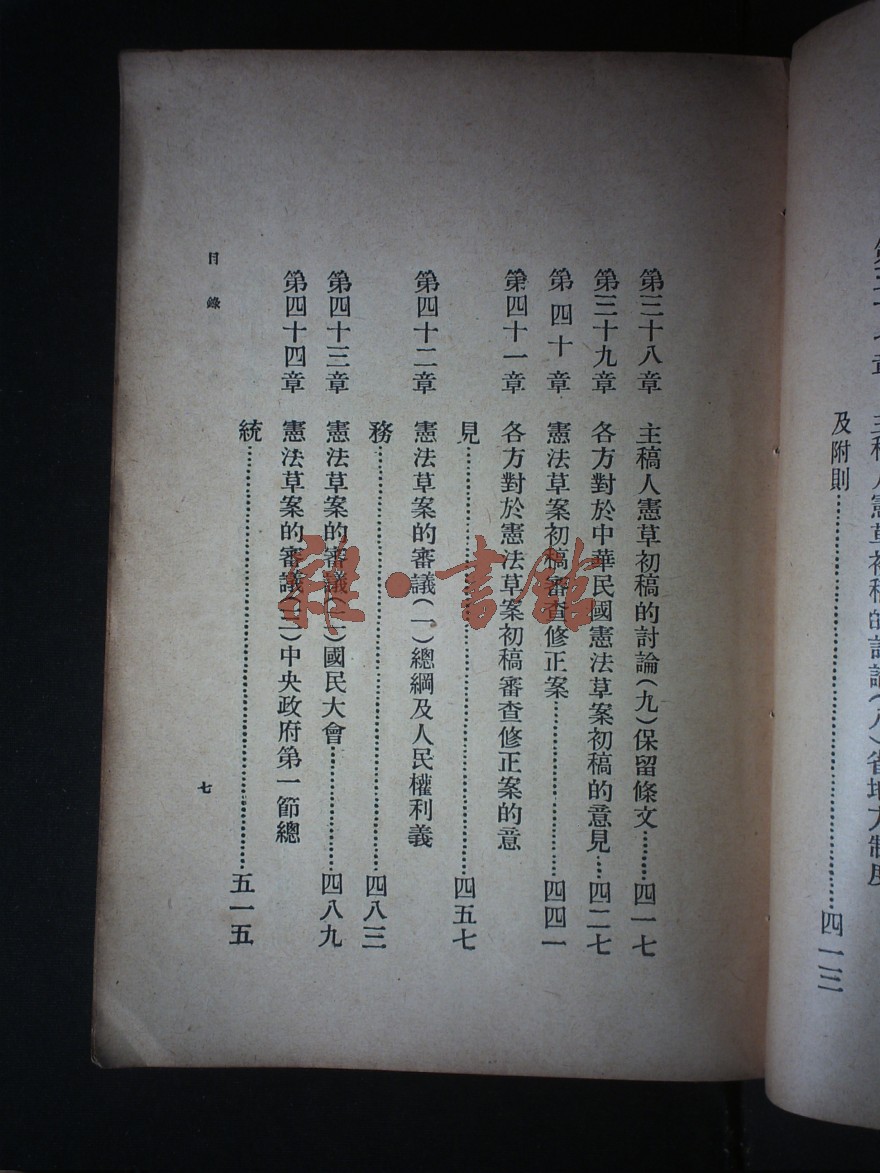 第三十七章 主稿人憲草初稿的討論(八)省地方制度
及附則……四一三
第三十八章 主稿人憲草初稿的討論(九)保留條文……四一七
第三十九章 各方對於中華民國憲法草案初稿的意見……四二七
第四十章 憲法草案初稿審查修正案……四四一
第四十一章 各方對於憲法草案初稿審查修正案的意
見……四五七
第四十二章 憲法草案的審議(一)總綱及人民權利義
務……四八三
第四十三章 憲法草案的審議(二)國民大會……四八九
第四十四章 憲法草案的審議(三)中央政府第一節總
統……五一五
目錄
七
雜·書館